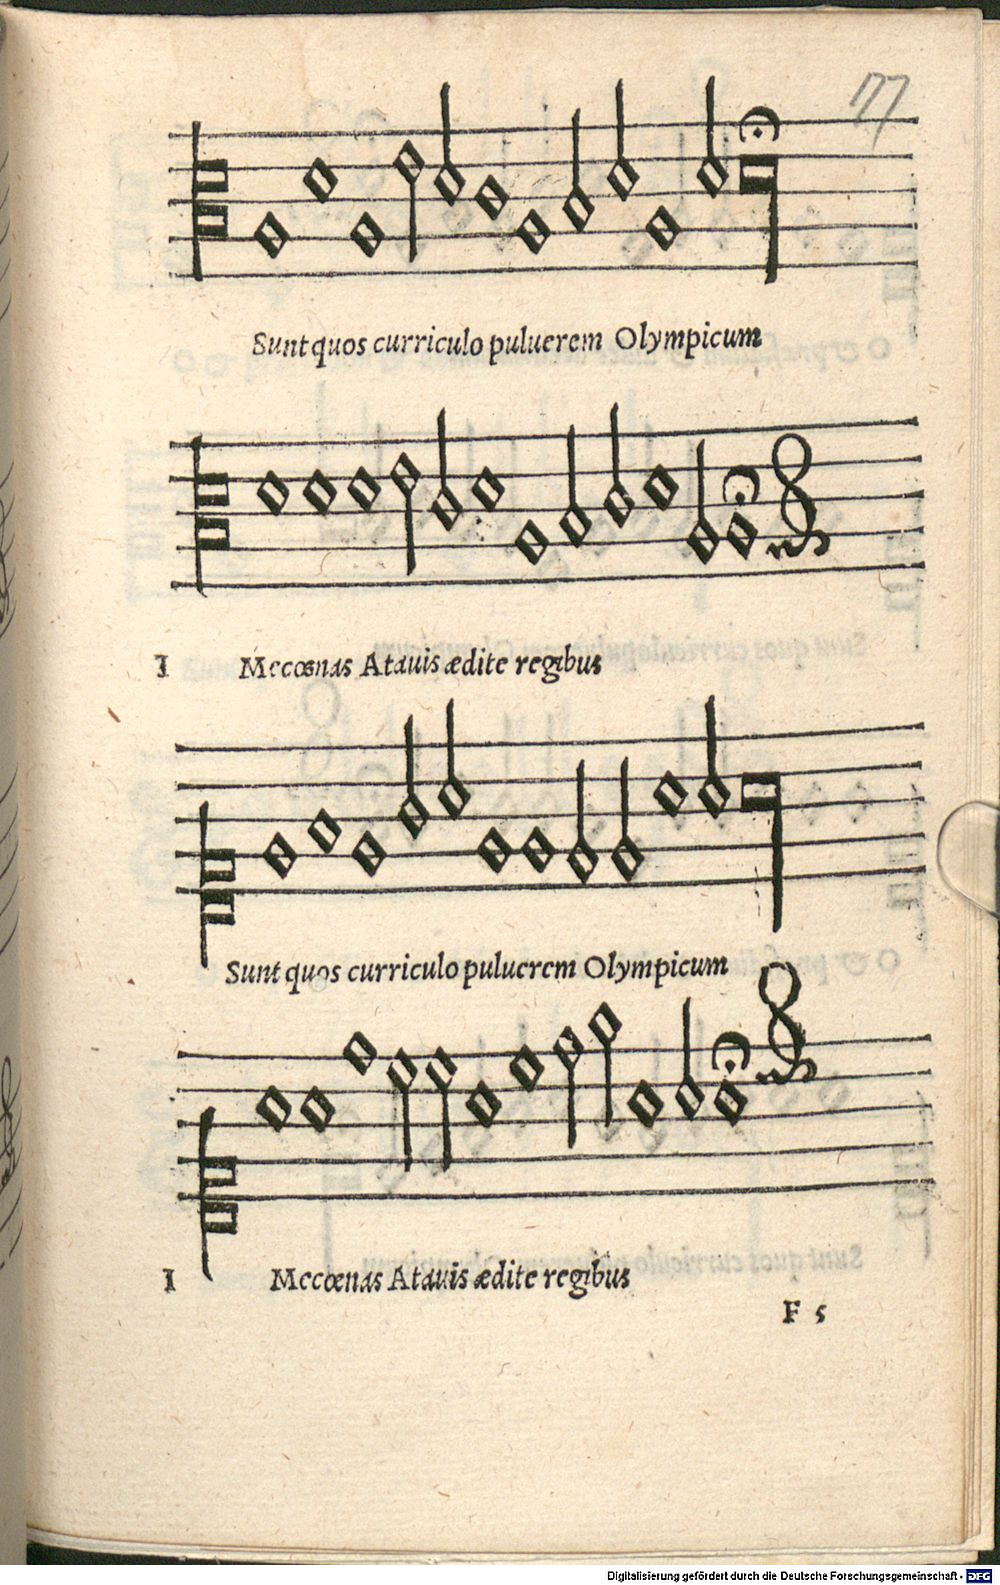 77
Sunt quos curriculo puluerem Olympicum
I Mecœnas Atauis ædite regibus
Sunt quos curriculo puluerem Olympicum
I Mecœnas Atauis ædite regibus
F 5
Digitalisierung gefördert durch die Deutsche Forschungsgemeinschaft - DFG